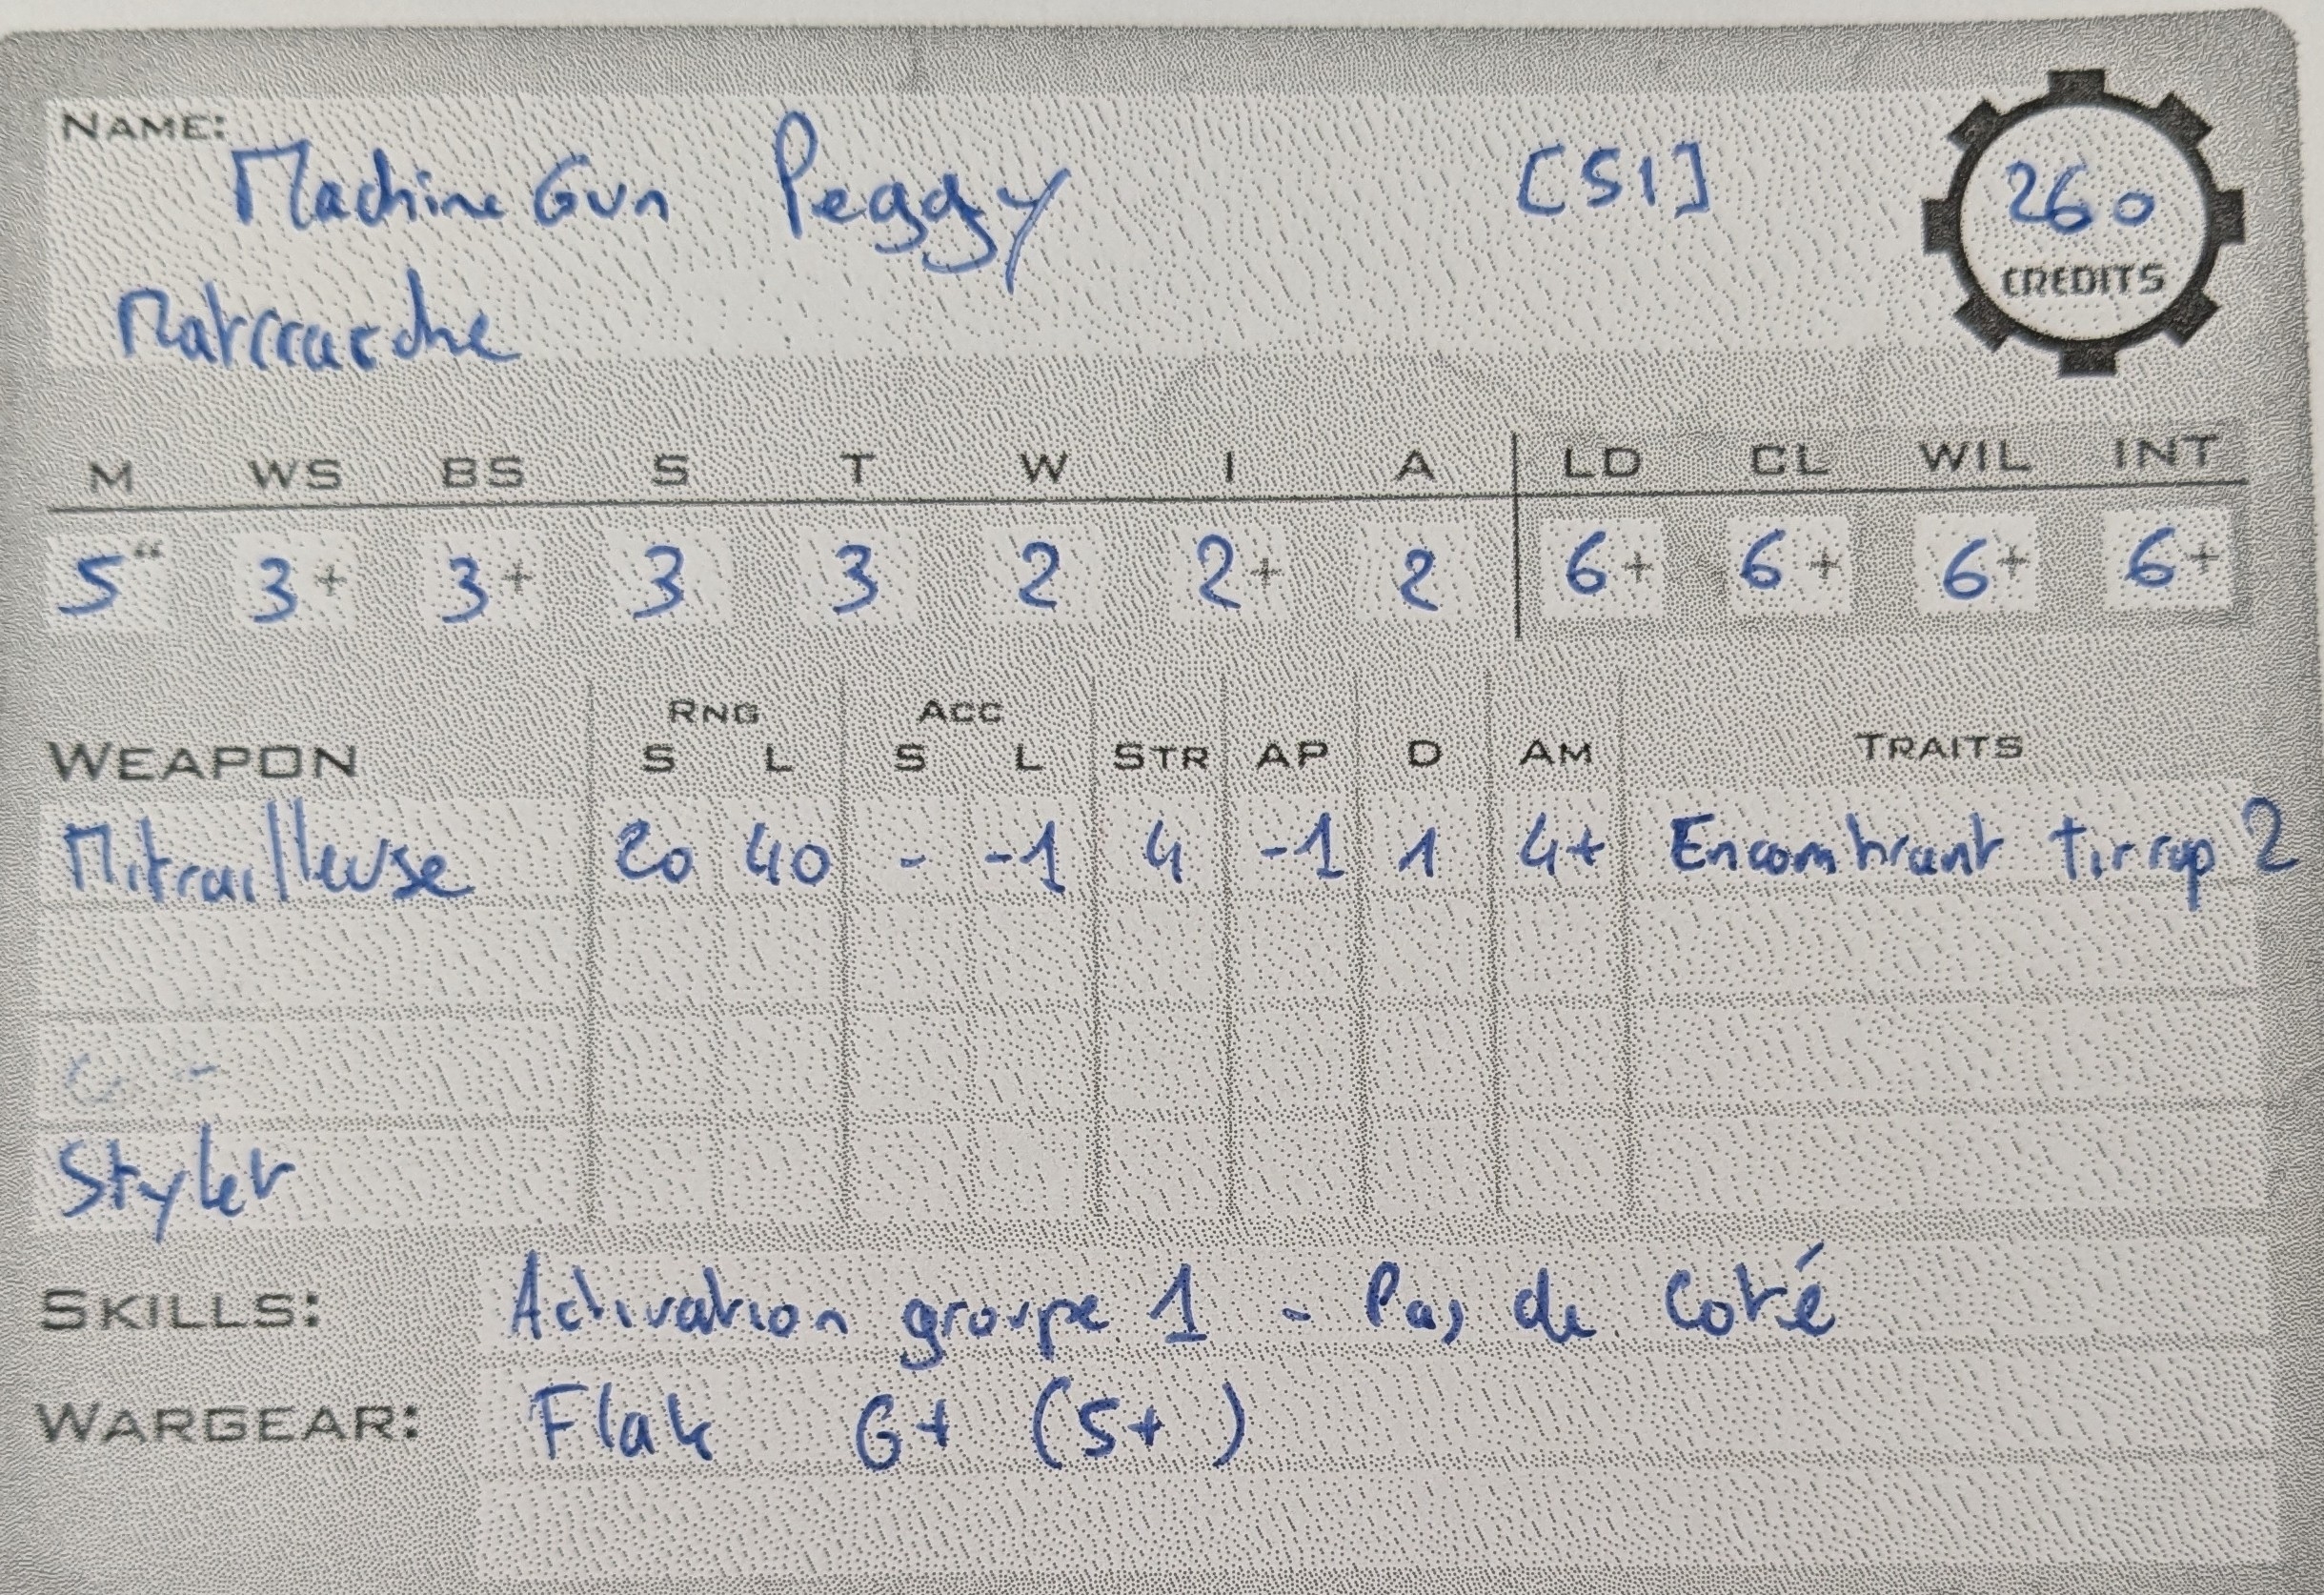 NAME: Machine Gun Peggy [51] 260 CREDITS
Matriarche
M WS BS S T W I A LD CL WIL INT
5" 3+ 3+ 3 3 2 2+ 2 6+ 6+ 6+ 6+
RNG ACC
WEAPON S L S L STR AP D AM TRAITS
Mitrailleuse 20 40 - -1 4 -1 1 4+ Encombrant tir rap 2
Stylet
SKILLS: Activation groupe 1 - Pas de coté
WARGEAR: Flak 6+ (5+)